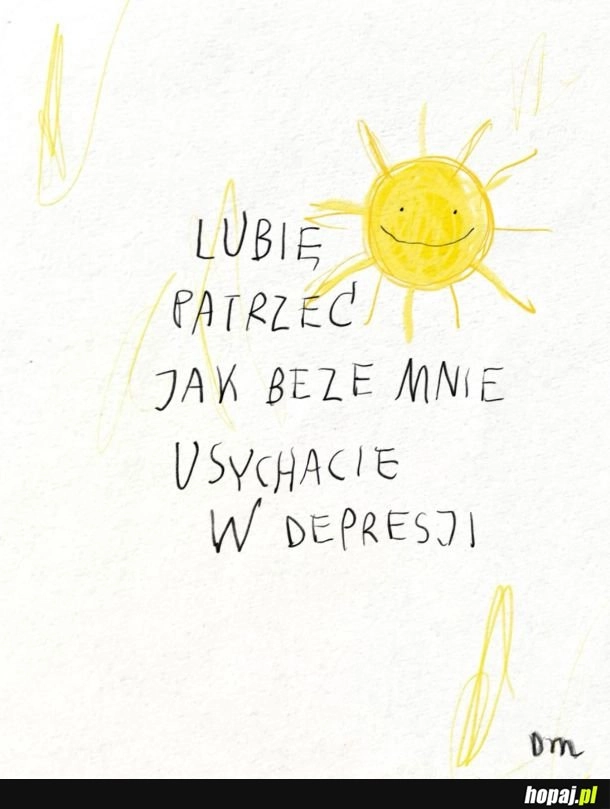 LUBIĘ
PATRZEĆ
JAK BEZE MNIE
USYCHACIE
W DEPRESJI
DM
hopaj.pl